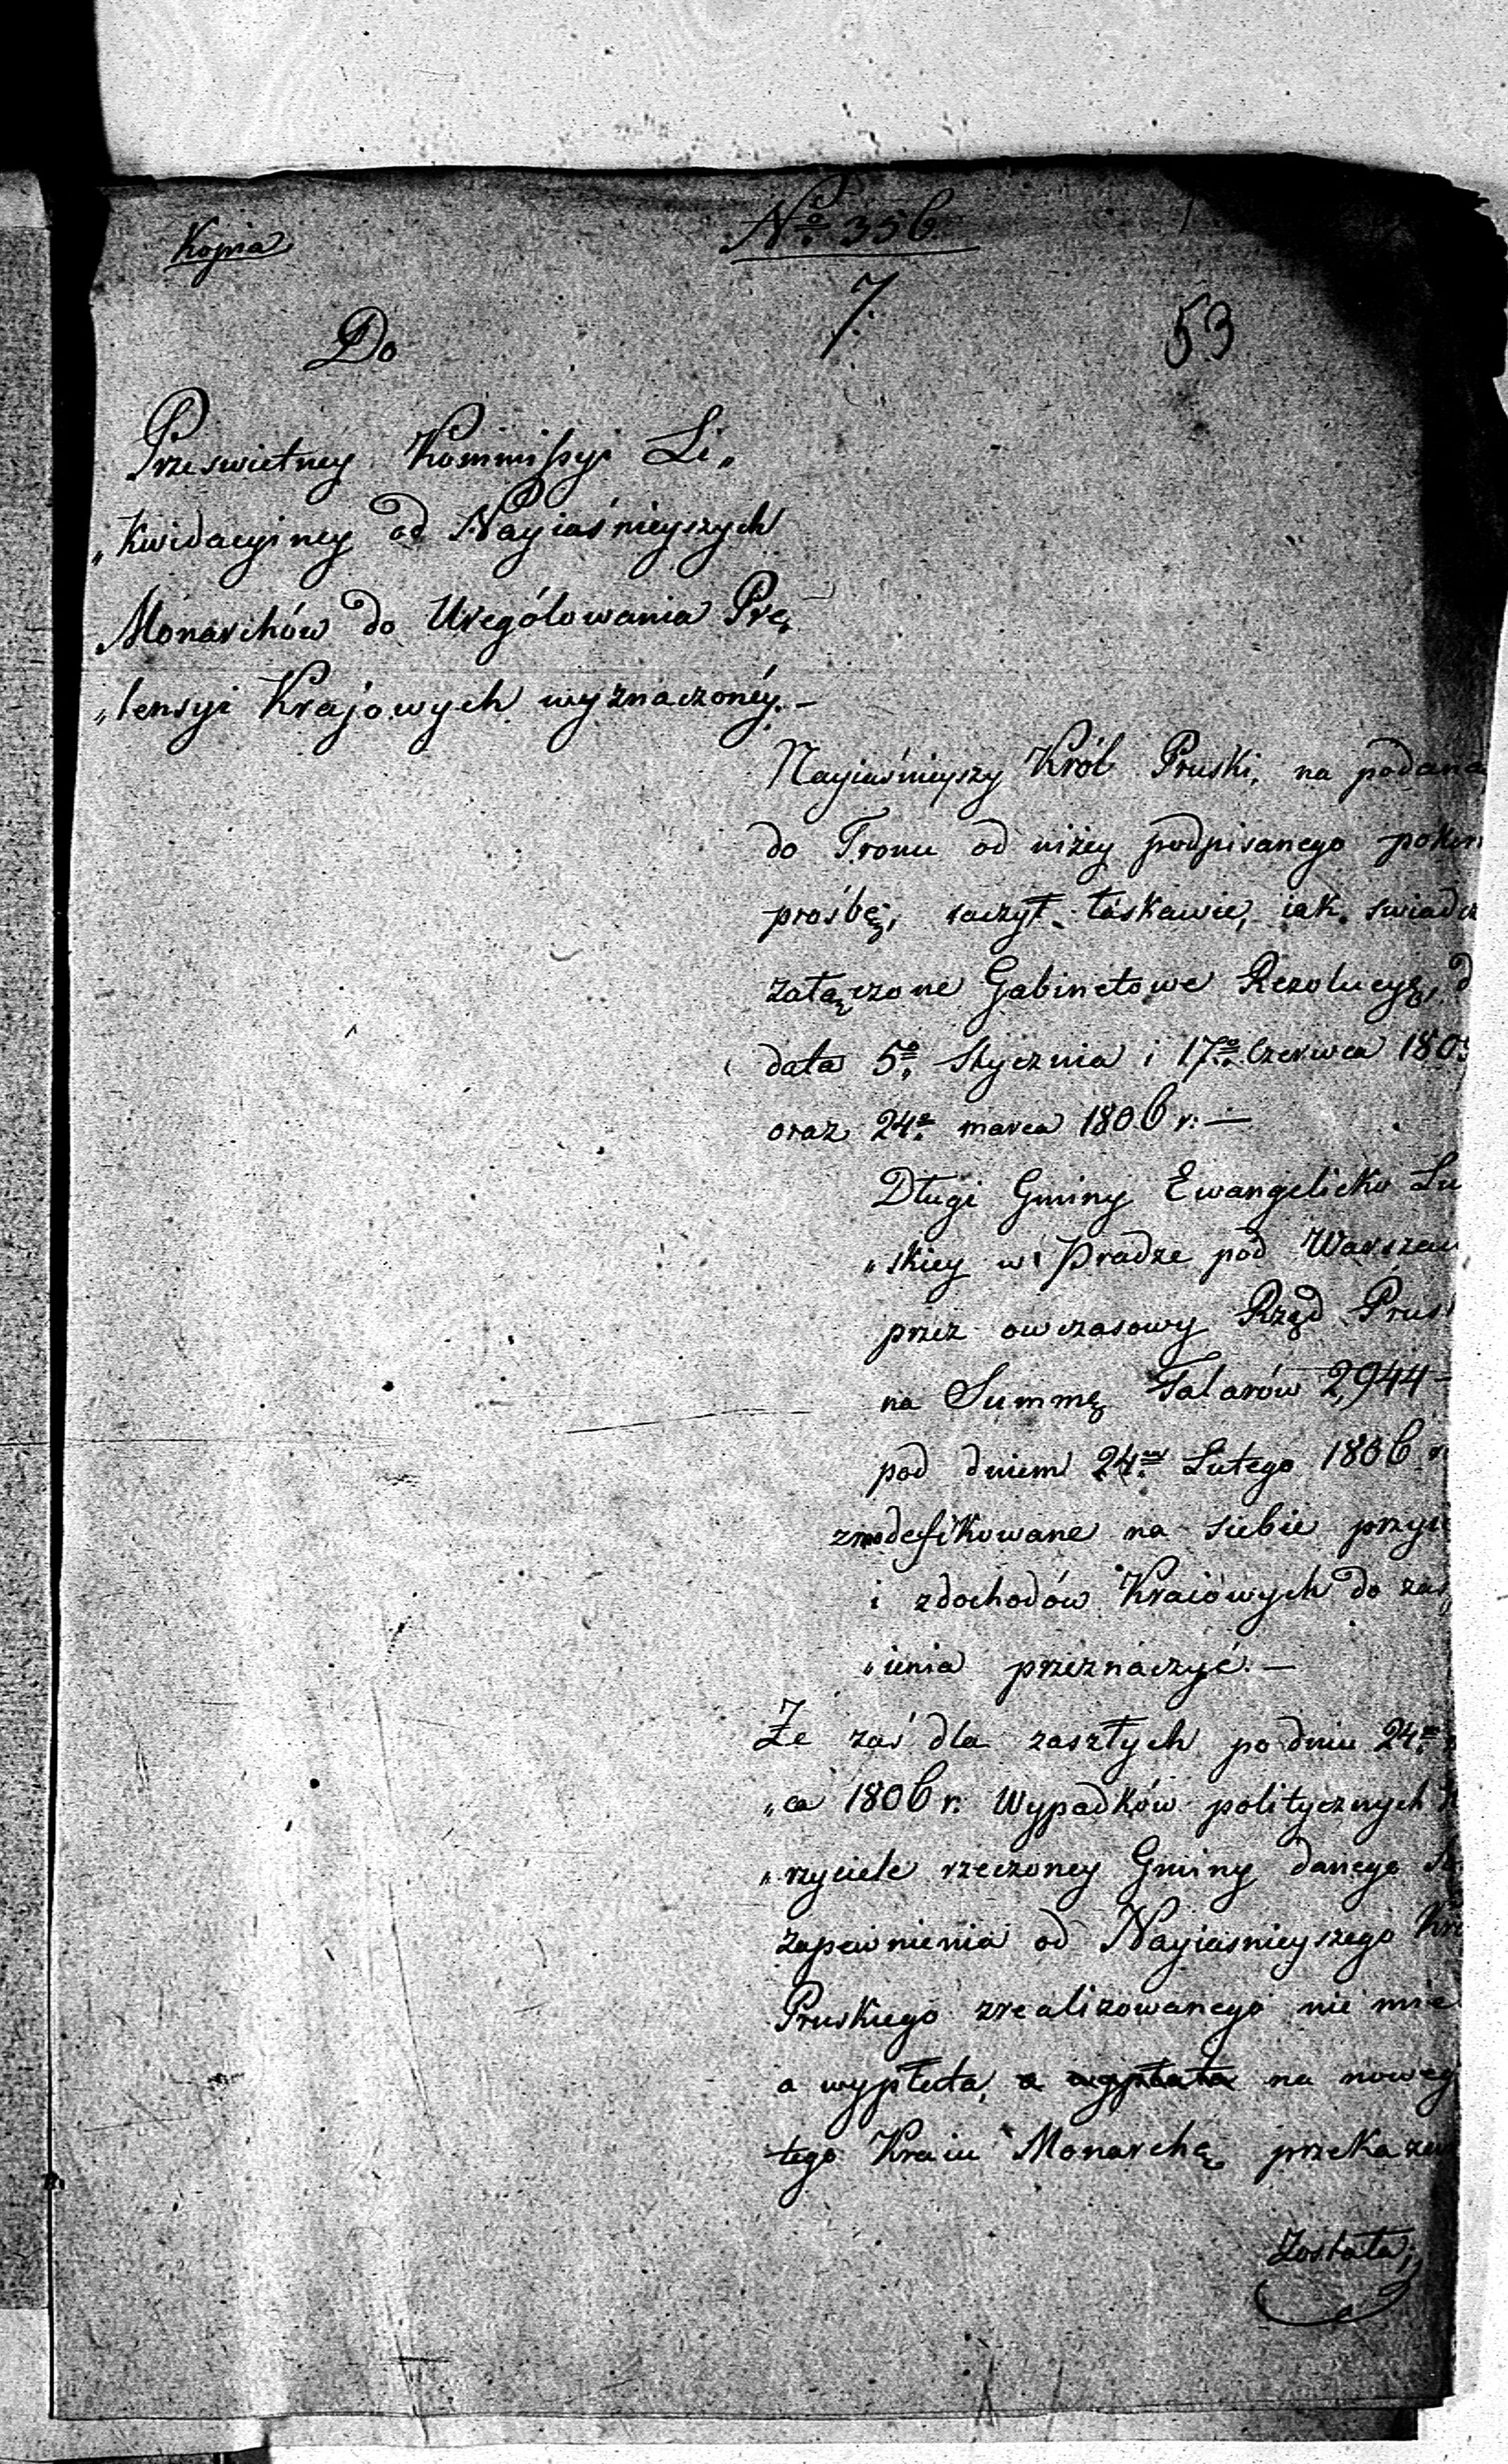 Kopia
No. 356
7.
53
Do
Przeswietney Kommissyi Li„
„kwidacyiney od Nayiaśnieyszych
Monarchów do Urególowania Pre„
„tensyi Krajowych wyznaczonéy. —
Nayiaśnieyszy Król Pruski, na podaną
do Tronu od niżey podpisanego pokor
prośbę, raczył łaskawie, iak swiadcz
załączone Gabinetowe Rezolucye, d
data 5o. Stycznia i 17o. Czerwca 180
oraz 24o. marca 1806 r. —
Długi Gminy Ewangelicko Lu
„skiey w Pradze pod Warszaw
przez owczasowy Rząd Prus
na Summę Talarów 2,944 —
pod dniem 24m. Lutego 1806 r.
zmodefikowane na siebie przyi
i zdochodów Kraiowych do zas
„ienia przeznaczyć. —
Że zaś dla zaszłych po dniu 24m.
„ca 1806 r. Wypadków politycznych
„rzyciele rzeczoney Gminy danego
zapewnienia od Nayiasnieyszego Kró
Pruskiego zrealizowanego nie mie
a wypłata, a wypłata na noweg
tego Kraiu Monarchę przekazan
została,